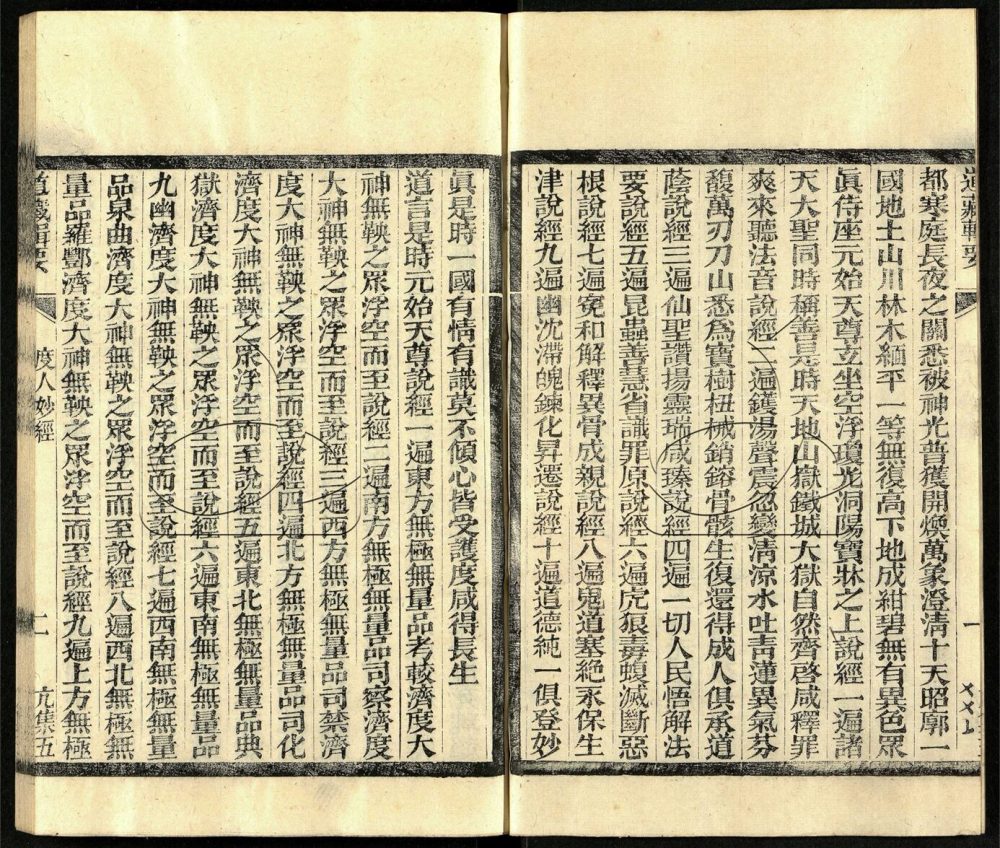 道藏輯要
都寒庭長夜之關悉被神光普獲開煥萬象澄清十天昭郭一
國地土山川林木緬平一等無復高下地成紺碧無有異色眾
眞侍座元始天尊立坐空浮瓊光洞陽寶牀之上說經一遍諸
天大聖同時稱善是時天地山嶽鐵城大獄自然齊啓咸釋罪
爽來聽法音說經二遍鑊湯聲震忽變清涼水吐青蓮異氣芬
馥萬刃刀山悉爲寶樹杻械銷鎔骨骸生復還得成人俱承道
蔭說經三遍仙聖讚揚靈瑞咸臻說經四遍一切人民悟解法
要說經五遍昆蟲善慧省識罪原說經六遍虎狼毒蝮滅斷惡
根說經七遍寃和解釋異骨成親說經八遍鬼道塞絕永保生
津說經九遍幽沈滯魄鍊化昇遷說經十遍道德純一俱登妙
眞是時一國有情有識莫不傾心皆受護度咸得長生
道言是時元始天尊說經一遍東方無極無量品考較濟度大
神無鞅之眾浮空而至說經二遍南方無極無量品司察濟度
大神無鞅之眾浮空而至說經三遍西方無極無量品司禁濟
度大神無鞅之眾浮空而至說經四遍北方無極無量品司化
濟度大神無鞅之眾浮空而至說經五遍東北無極無量品典
獄濟度大神無鞅之眾浮空而至說經六遍東南無極無量品
九幽濟度大神無鞅之眾浮空而至說經七遍西南無極無量
品泉曲濟度大神無鞅之眾浮空而至說經八遍西北無極無
量品羅酆濟度大神無鞅之眾浮空而至說經九遍上方無極
道藏輯要 度人妙經 二 亢集五